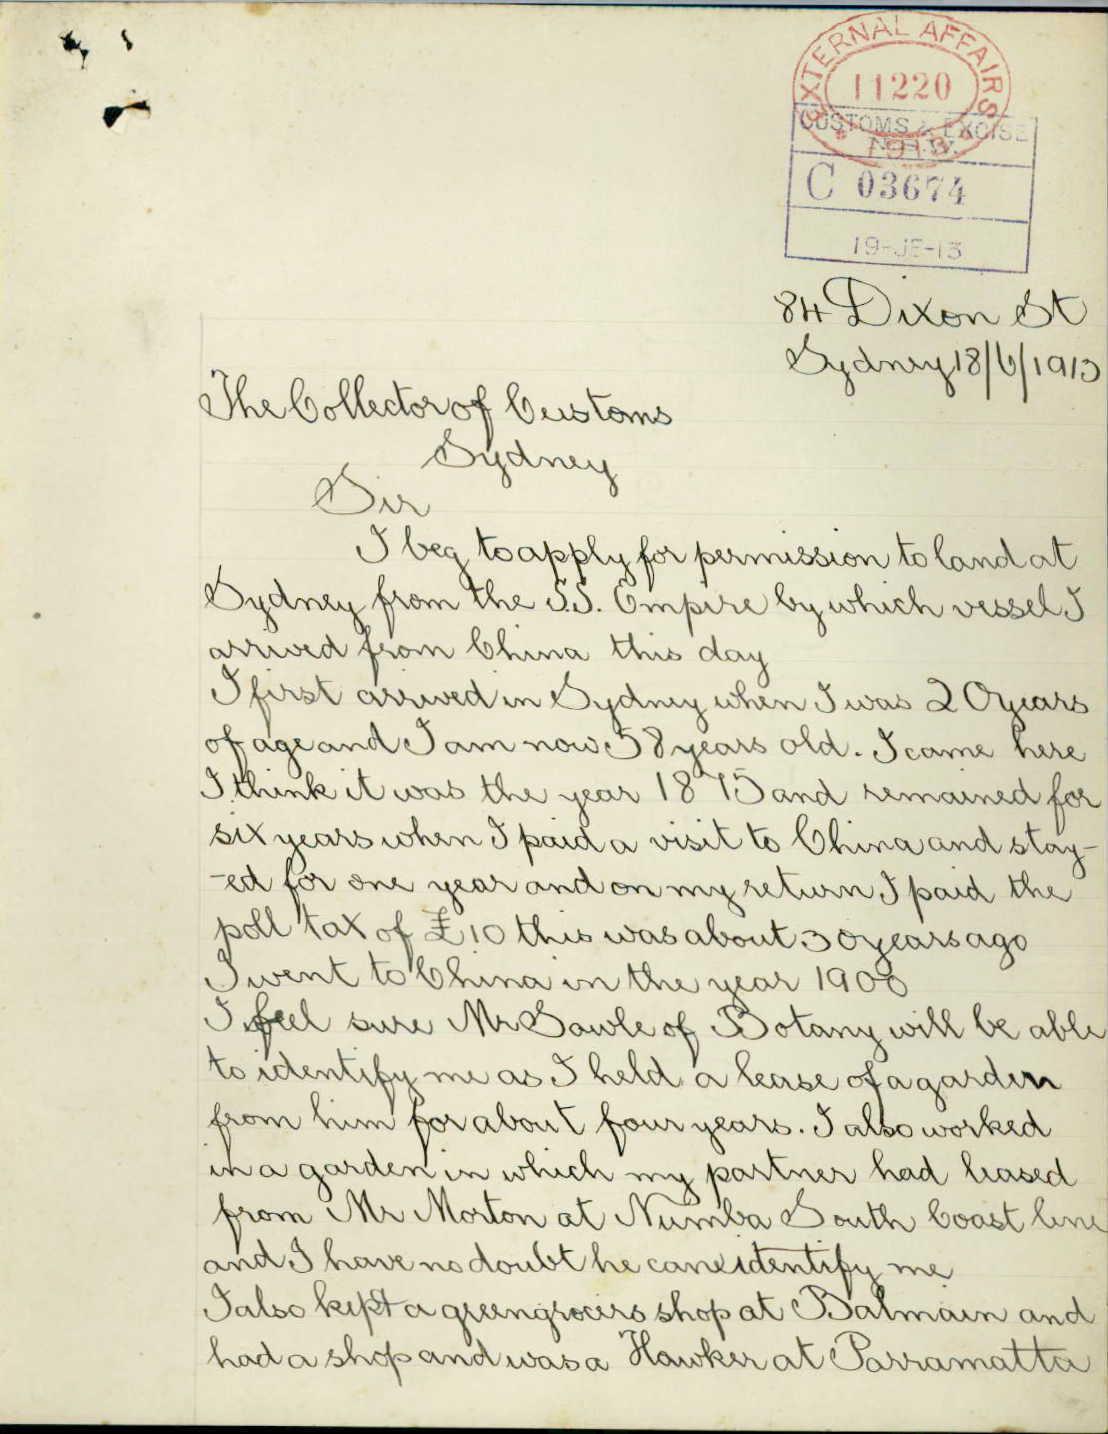 EXTERNAL AFFAIRS
11220
CUSTOMS & EXCISE
N.S.W.
1913
C 03674
19-JE-13
84 Dixon St
Sydney 18/6/1913
The Collector of Customs
Sydney
Sir
I beg to apply for permission to land at
Sydney from the S.S. Empire by which vessel I
arrived from China this day
I first arrived in Sydney when I was 20 years
of age and I am now 58 years old. I came here
I think it was the year 1875 and remained for
six years when I paid a visit to China and stay-
-ed for one year and on my return I paid the
poll tax of £10 this was about 30 years ago
I went to China in the year 1908
I feel sure Mr Sawle of Botany will be able
to identify me as I held a lease of a garden
from him for about four years. I also worked
in a garden in which my partner had leased
from Mr Morton at Numba South Coast line
and I have no doubt he can identify me
I also kept a greengrocers shop at Balmain and
had a shop and was a Hawker at Parramatta